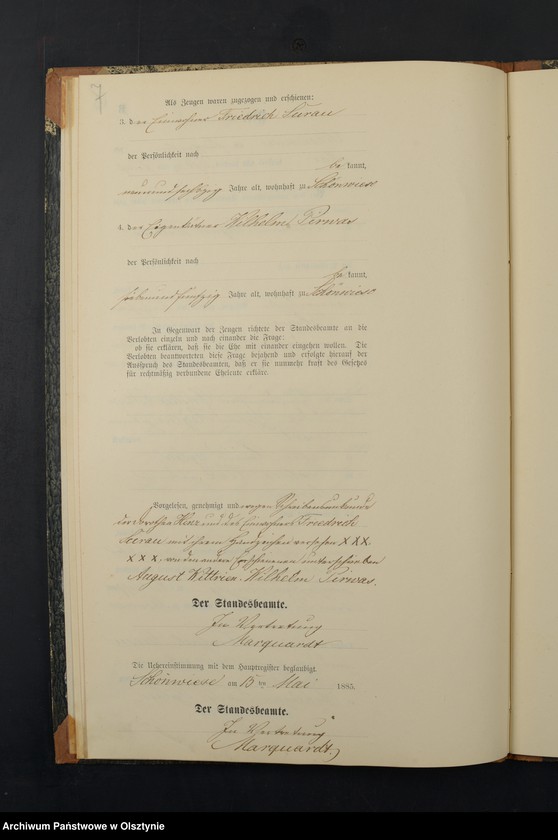 7
Als Zeugen waren zugezogen und erschienen:
3. der Einwohner Friedrich Surau
der Persönlichkeit nach
be kannt,
neunundsechzig Jahre alt, wohnhaft zu Schönwiese
4. der Eigenkäthner Wilhelm Pirwas
der Persönlichkeit nach
be kannt,
siebenundfünfzig Jahre alt, wohnhaft zu Schönwiese
In Gegenwart der Zeugen richtete der Standesbeamte an die
Verlobten einzeln und nach einander die Frage:
ob sie erklären, daß sie die Ehe mit einander eingehen wollen. Die
Verlobten beantworteten diese Frage bejahend und erfolgte hierauf der
Ausspruch des Standesbeamten, daß er sie nunmehr kraft des Gesetzes
für rechtmäßig verbundene Eheleute erkläre.
Vorgelesen, genehmigt und wegen Schreibensunkunde
der Dorothea und des Einwohners Friedrich
Surau mit ihrem Handzeichen versehen XXX.
XXX, von den andern Erschienenen unterschrieben
August Wittrien. Wilhelm Pirwas.
Der Standesbeamte.
In Vertretung
Marquardt
Die Uebereinstimmung mit dem Hauptregister beglaubigt.
Schönwiese am 15 ten Mai 1885.
Der Standesbeamte.
In Vertretung
Marquardt.
Archiwum Państwowe w Olsztynie